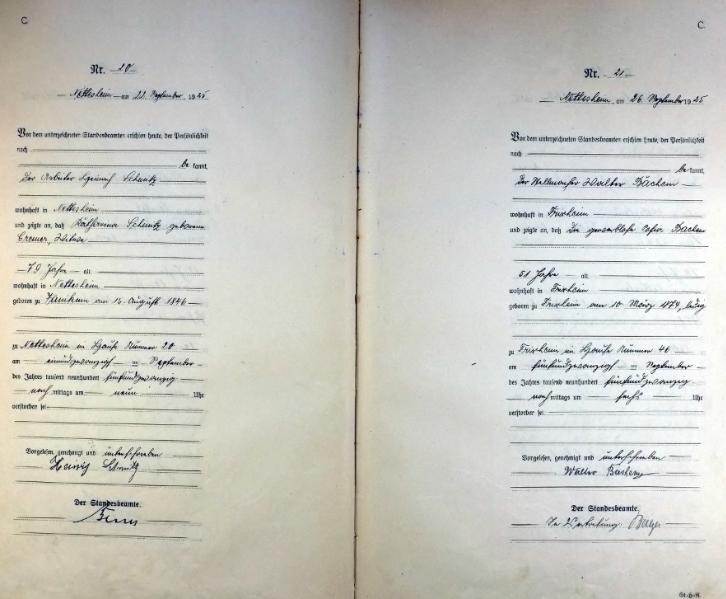 C.
Nr. 20
Nettesheim am 22. September 1925
Vor dem unterzeichneten Standesbeamten erschien heute, der Persönlichkeit
nach
be kannt,
Der Arbeiter Heinrich Schmitz
wohnhaft in Nettesheim
und zeigte an, daß Katharina Schmitz geborene
Cremer, Witwe
79 Jahre alt
wohnhaft in Nettesheim
geboren zu am 15. August 1846
zu Nettesheim im Hause Nummer 20
am einundzwanzigsten September
des Jahres tausend neunhundert fünfundzwanzig
nach mittags um neun Uhr
verstorben sei
Vorgelesen, genehmigt und unterschrieben
Schmitz
Der Standesbeamte.
C.
Nr. 21
Nettesheim am 26. September 1925
Vor dem unterzeichneten Standesbeamten erschien heute, der Persönlichkeit
nach
be kannt,
Der Walter Bachem
wohnhaft in Frixheim
und zeigte an, daß Die Bachem
51 Jahre alt
wohnhaft in Frixheim
geboren zu Frixheim am 10. März 1874, ledig
zu Frixheim im Hause Nummer 46
am fünfundzwanzigsten September
des Jahres tausend neunhundert fünfundzwanzig
nach mittags um sechs Uhr
verstorben sei
Vorgelesen, genehmigt und unterschrieben
Walter Bachem
Der Standesbeamte.
In Vertretung